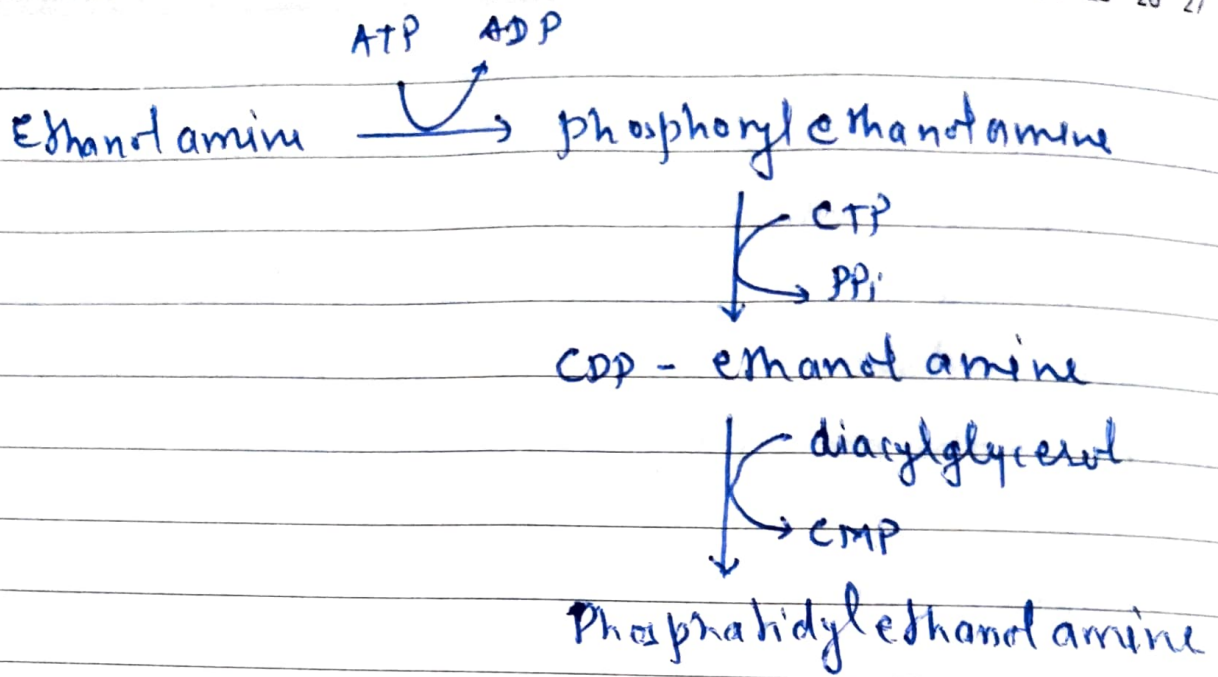 ATP ADP
Ethanolamine phosphorylethanolamine
CTP
PPi
CDP - ethanolamine
diacylglycerol
CMP
Phosphatidylethanolamine